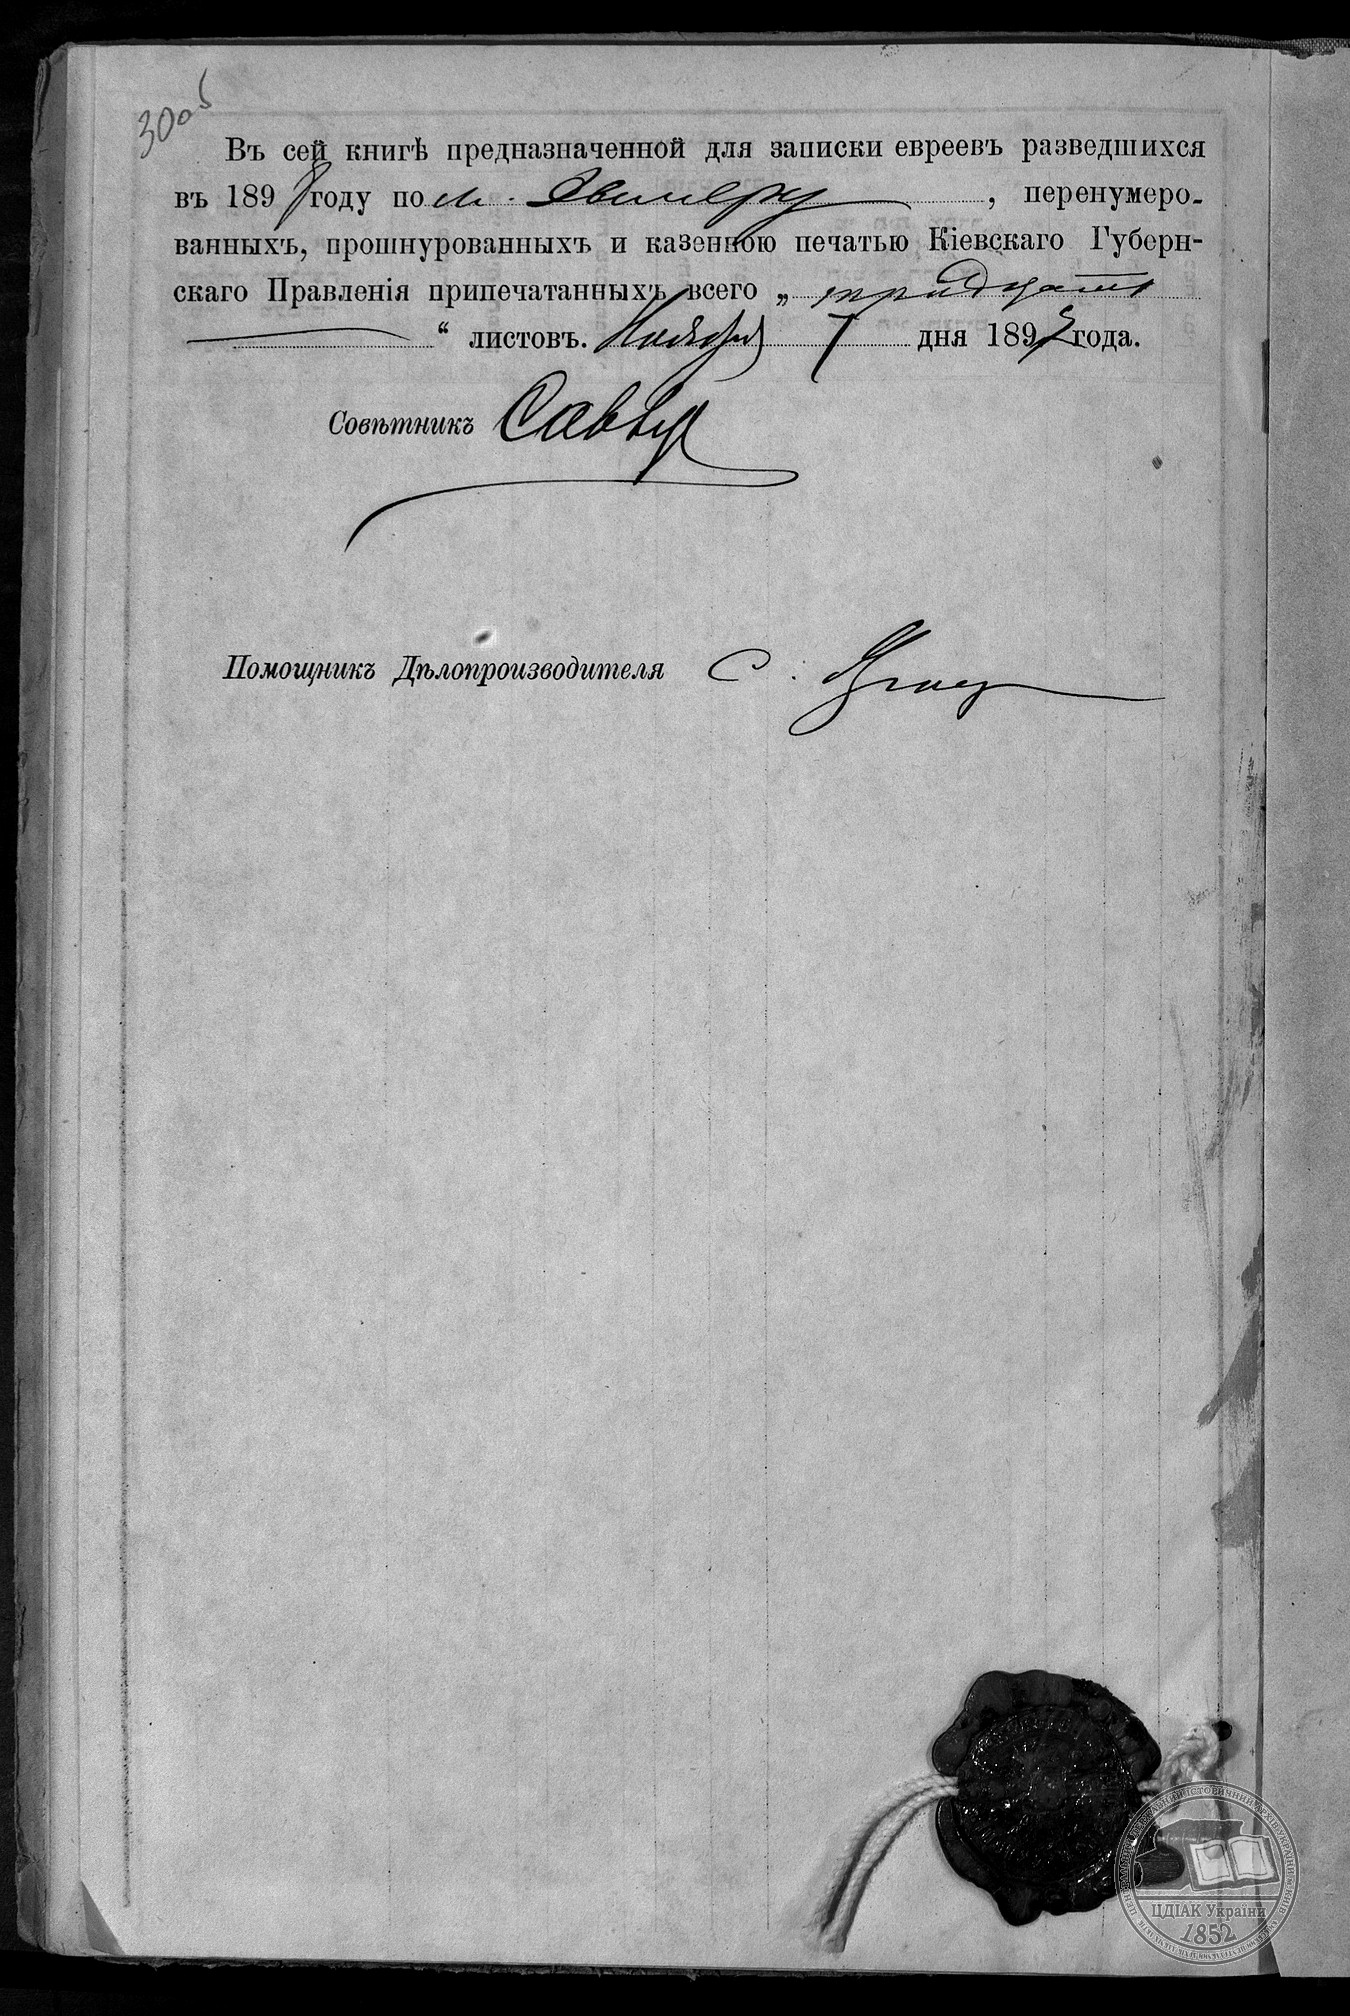 30об
Въ сей книгѣ предназначенной для записки евреевъ разведшихся
въ 1898 году по м. Эвилеру, перенумеро-
ванныхъ, прошнурованныхъ и казенною печатью Кіевскаго Губерн-
скаго Правленія припечатанныхъ всего „ тридцать
“ листовъ. Ноября 7 дня 1897 года.
Совѣтникъ
Помощникъ Дѣлопроизводителя С.
ЦЕНТРАЛЬНИЙ ДЕРЖАВНИЙ ІСТОРИЧНИЙ АРХІВ УКРАЇНИ
ЦДІАК України
1852